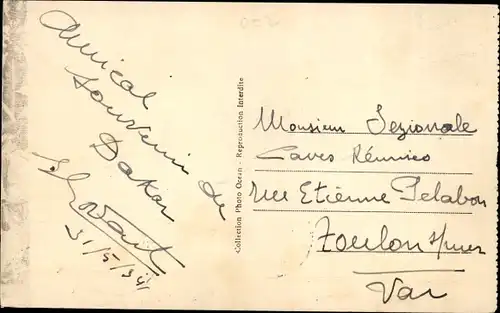 Amical
souvenir de
Dakar
31/5/341
Collection Photo Ocean - Reproduction Interdite
Monsieur Sezionale
Caves Réunies
rue Etienne Pelabon
Toulon s/mer
Var